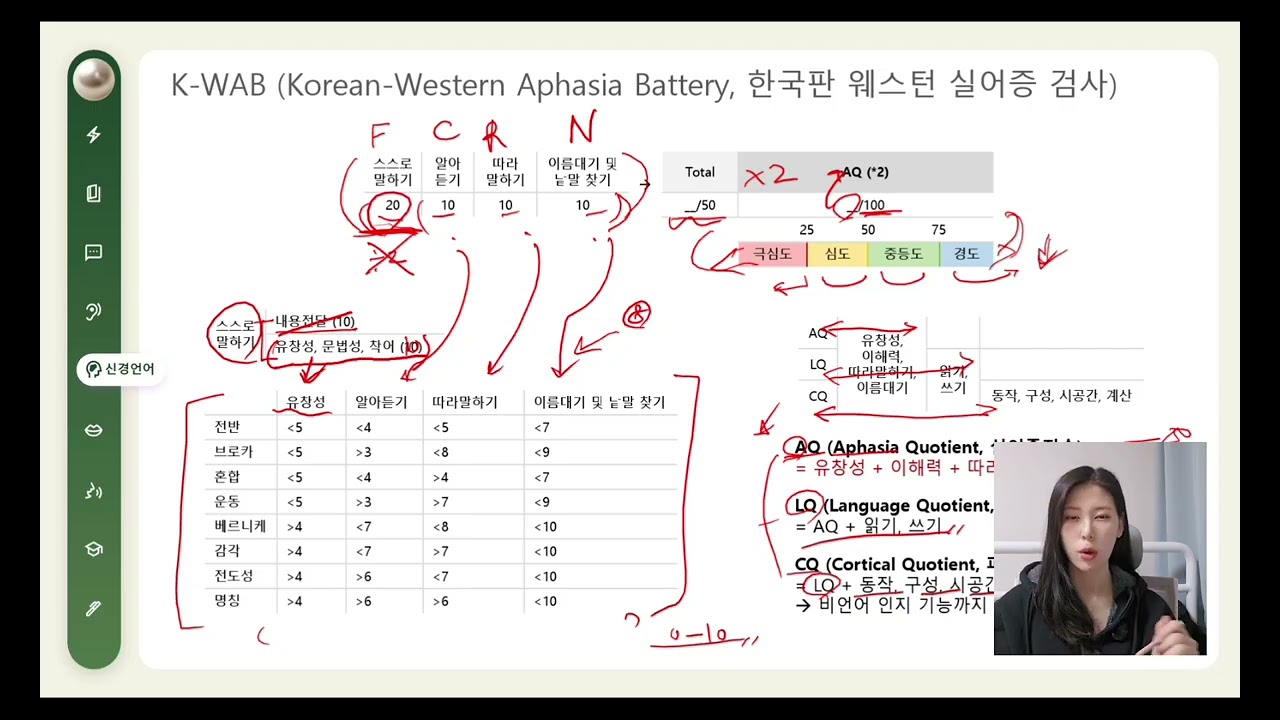 K-WAB (Korean-Western Aphasia Battery, 한국판 웨스턴 실어증 검사)
F C R N
스스로 말하기 알아 듣기 따라 말하기 이름대기 및 낱말 찾기 → Total AQ (*2)
×2
20 10 10 10 __/50 __/100
25 50 75
극심도 심도 중등도 경도
신경언어
스스로 말하기
내용전달 (10)
유창성, 문법성, 착어 (10)
유창성 알아듣기 따라말하기 이름대기 및 낱말 찾기
전반 <5 <4 <5 <7
브로카 <5 >3 <8 <9
혼합 <5 <4 >4 <7
운동 <5 >3 >7 <9
베르니케 >4 <7 <8 <10
감각 >4 <7 >7 <10
전도성 >4 >6 <7 <10
명칭 >4 >6 >6 <10
0-10
AQ
LQ
CQ
유창성, 이해력, 따라말하기, 이름대기
읽기, 쓰기
동작, 구성, 시공간, 계산
AQ (Aphasia Quotient,
= 유창성 + 이해력 + 따라
LQ (Language Quotient,
= AQ + 읽기, 쓰기
CQ (Cortical Quotient,
= LQ + 동작, 구성, 시공간
→ 비언어 인지 기능까지